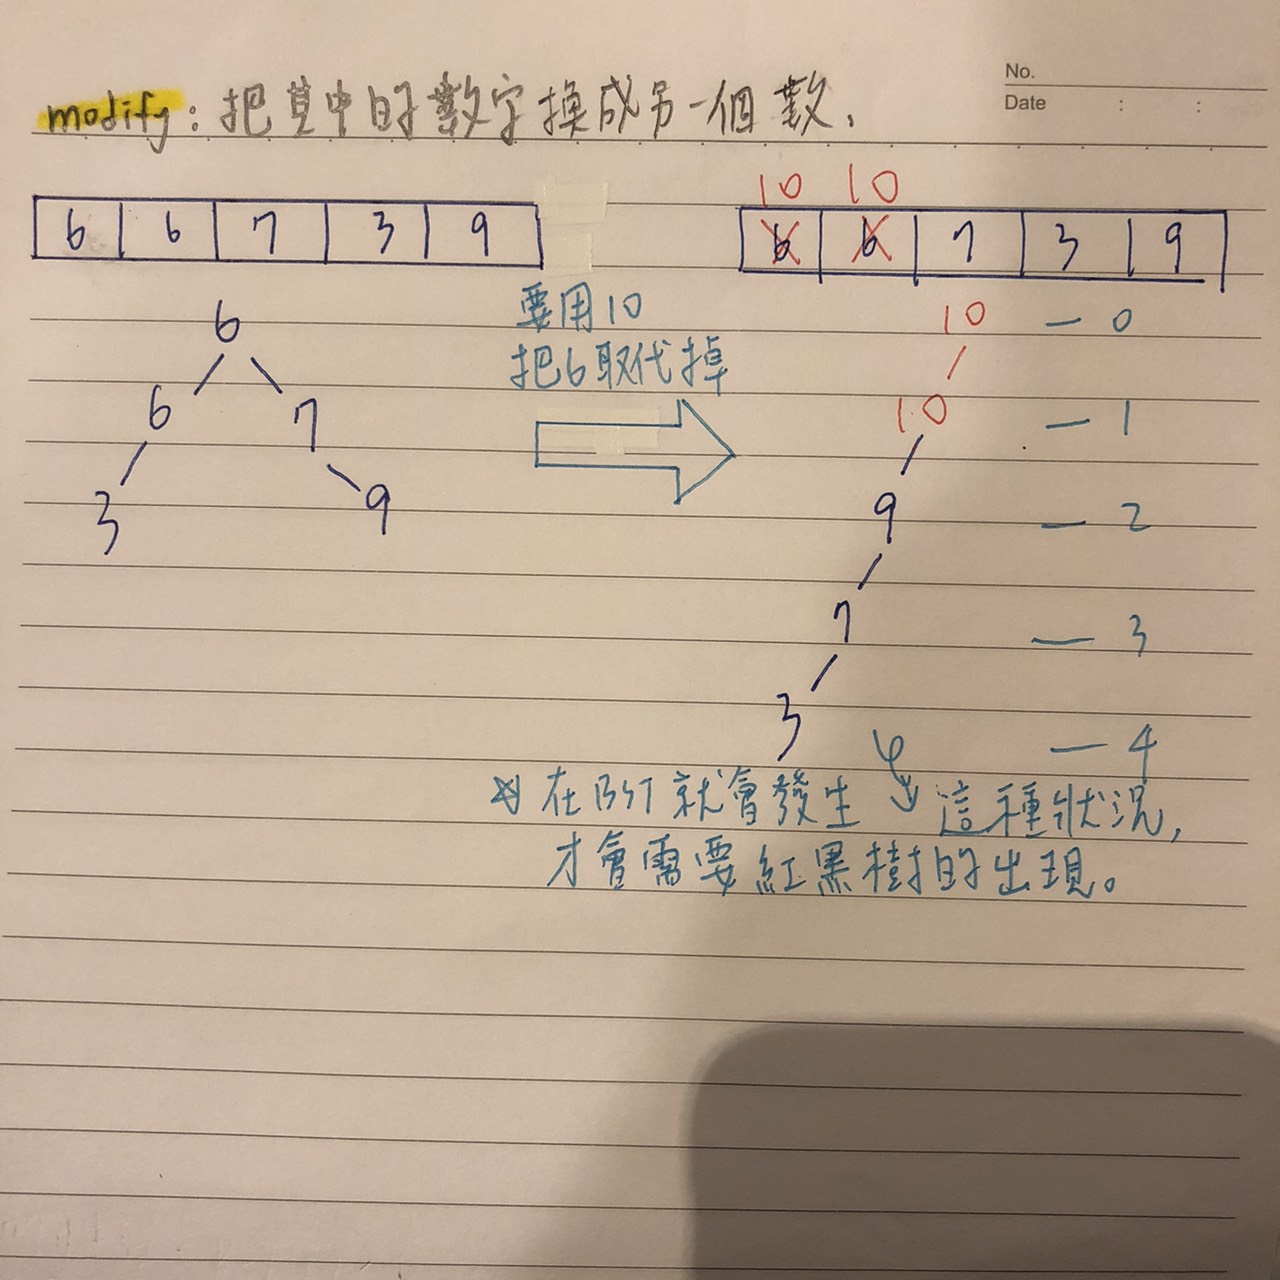 No.
Date : :
modify：把其中的數字換成另一個數.
10 10
6 6 7 3 9
6 6 7 3 9
要用10
把6取代掉
6
6 7
3 9
10 — 0
10 — 1
9 — 2
7 — 3
3 — 4
☆在BST就會發生 這種狀況,
才會需要紅黑樹的出現。